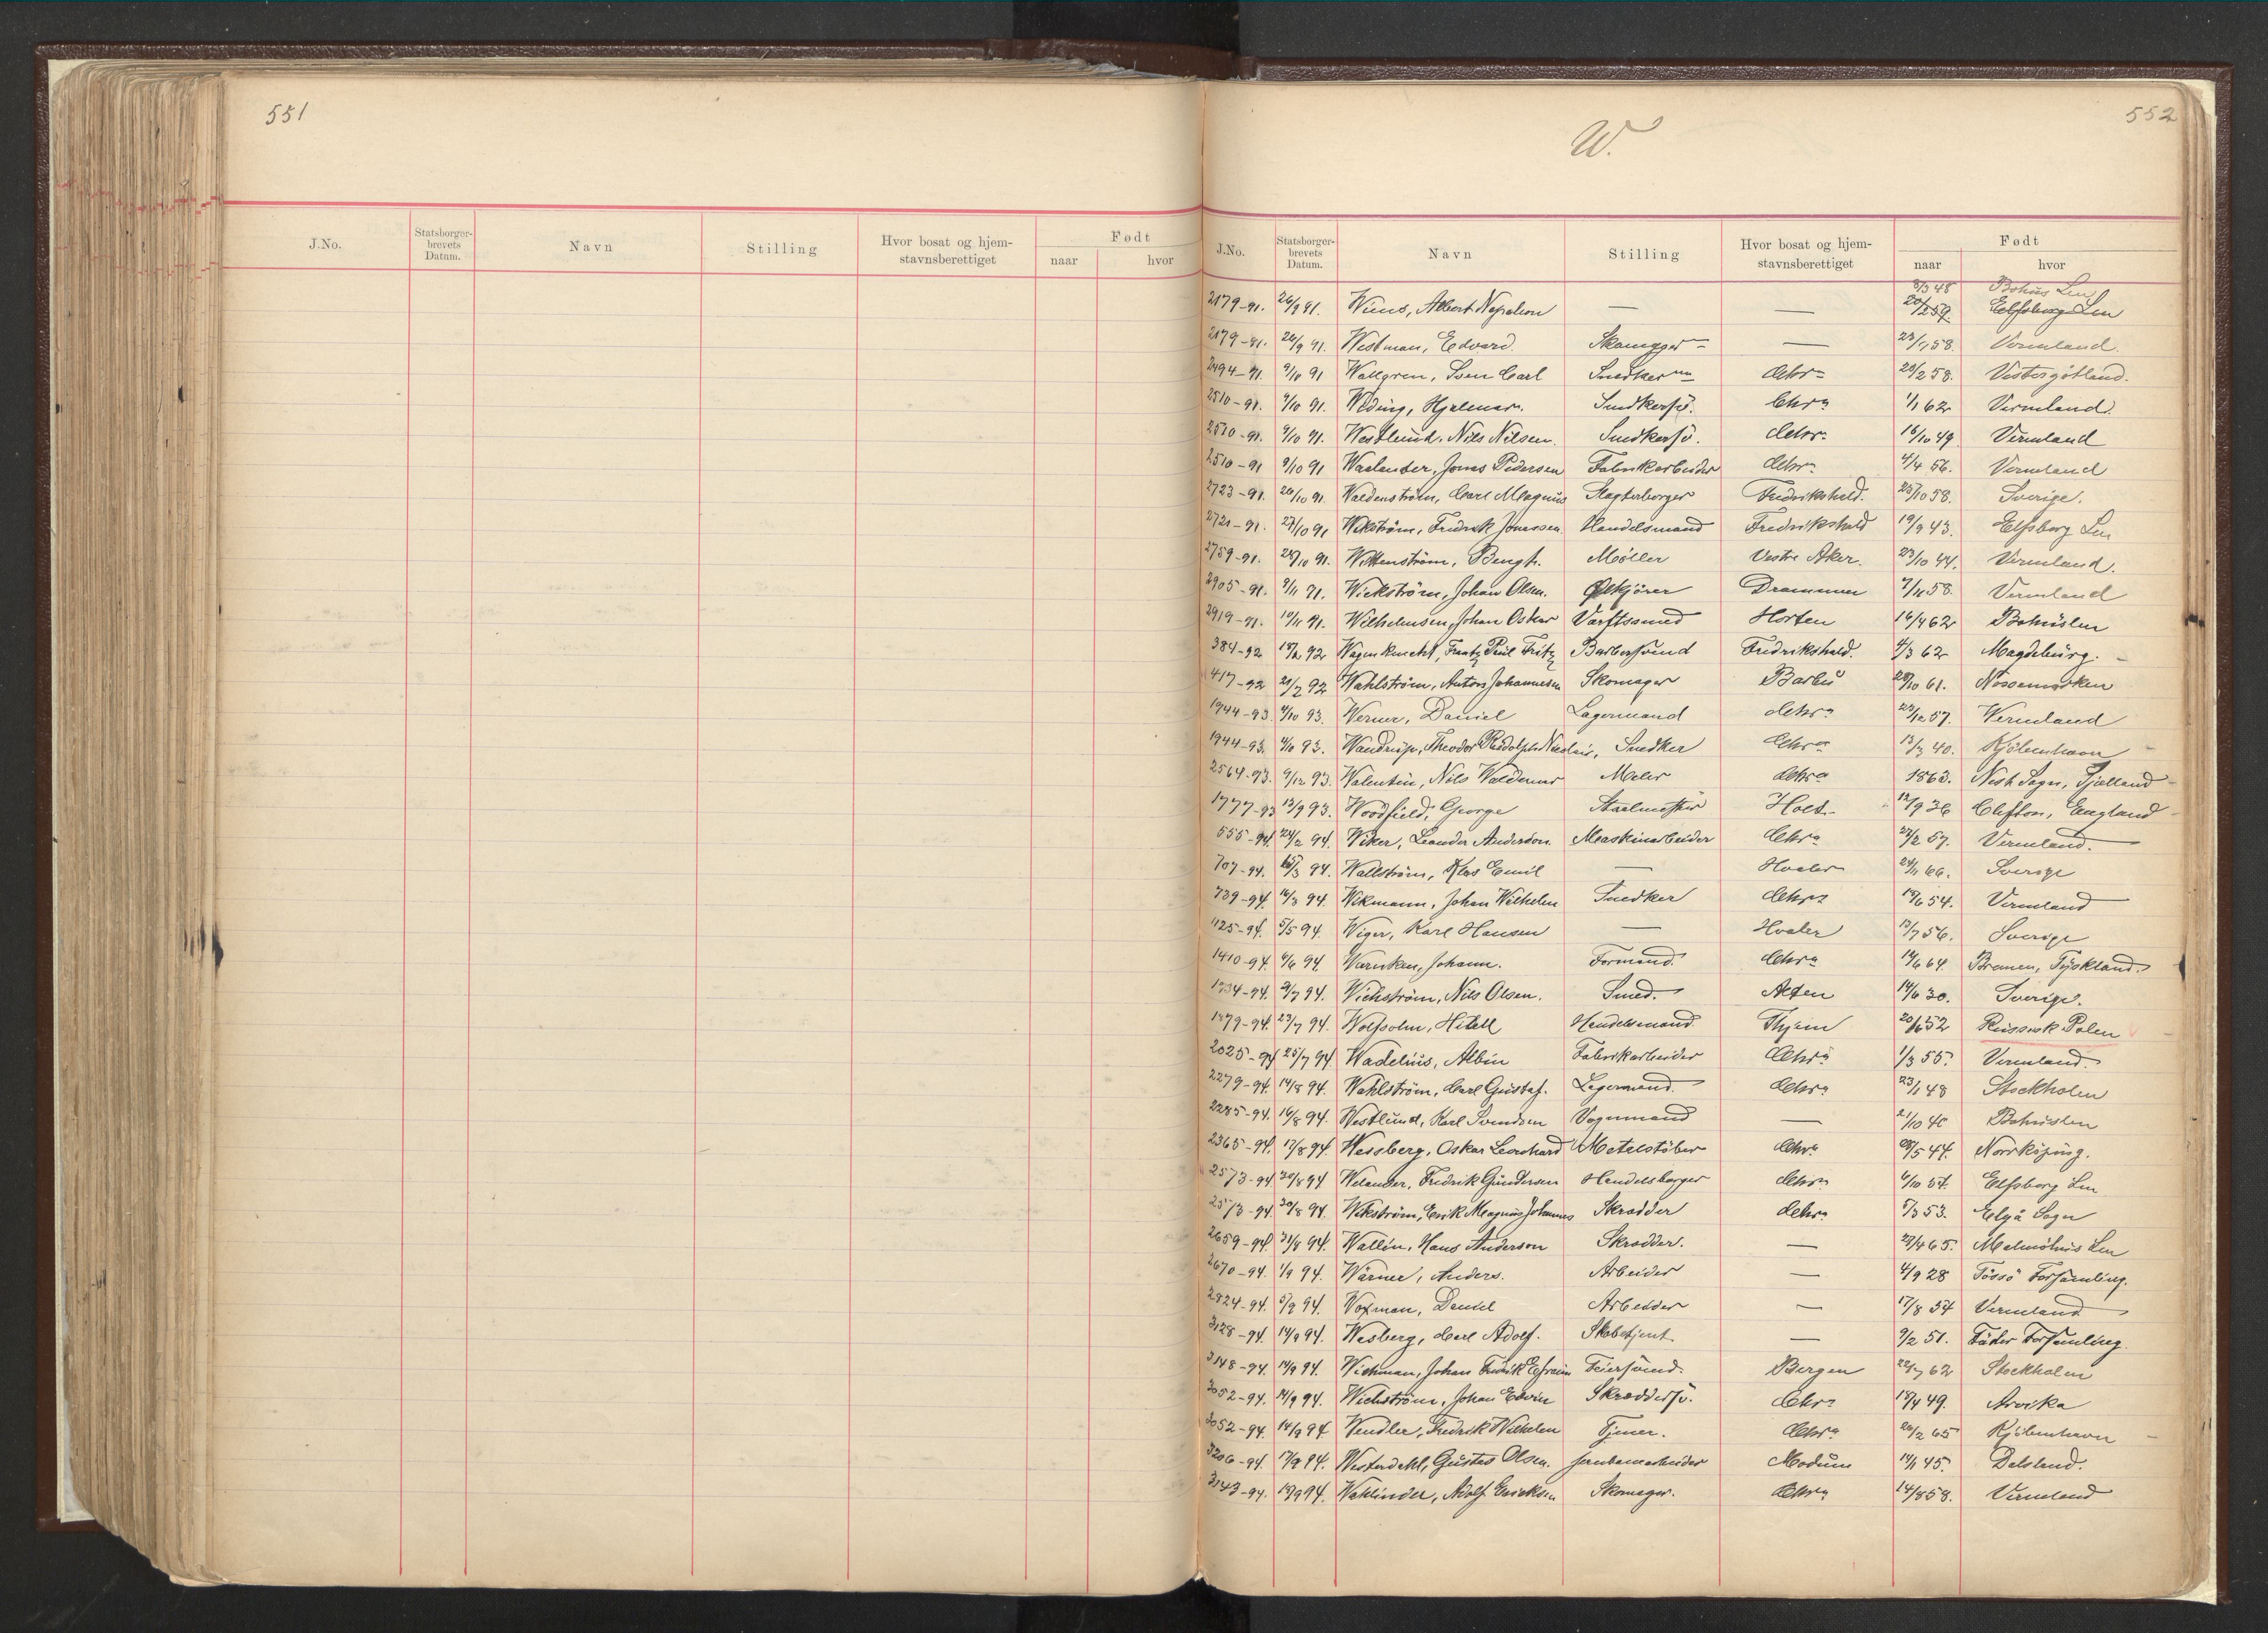 551
J.No.
Statsborger-
brevets
Datum.
Navn
Stilling
Hvor bosat og hjem-
stavnsberettiget
Født
naar
hvor
552
W.
J.No.
Statsborger-
brevets
Datum.
Navn
Stilling
Hvor bosat og hjem-
stavnsberettiget
Født
naar
hvor
8/3 48 Bohus Len
2179-91. 26/9 91. Albert Napoleon — — Elfsborg Len
2179-91. 26/9 91. Westman, Edvard. — 58. Vermland.
2494-91. 9/10 91 Wallgren, Sven Carl Chra 28/2 58. Vestergötland.
2510-91. 9/10 91. Hjalmar. Snedkersv. Chra 1/1 62 Vermland.
2510-91. 9/10 91. Westlund. Nils Nilsen. Snedkersv. Chra 16/10 49 Vermland
2510-91 9/10 91 Waelander, Jonas Pedersen Fabrikarbeider Chra 4/4 56. Vermland
2723-91. 26/10 91. Waldenström, Carl Magnus Slagterborger Fredrikshald. 25/10 58. Sverige.
2721-91. 27/10 91 Wikström, Fredrik Jonassen Handelsmand Fredrikshald 19/9 43. Elfsborg Len
2759-91. 28/10 91. Wittenström, Bengt. Møller Vestre Aker. 23/10 44. Vermland.
2905-91. 9/11 91. Wickström, Johan Olsen. Ølkjører Drammen 7/11 58. Vermland
2919-91. 10/11 91. Wilhelmsen, Johan Oskar Værftssmed Horten 16/4 62 Bohuslen
384-92 18/2 92 Wagenknecht, Frantz Paul Fritz Barbersvend Fredrikshald. 4/3 62 Magdeburg.
417-92 92 Wahlström, Anton Johannesen Skomager Barbu 61. Nössemarken
1944-93. 4/10 93. Werner, Daniel Lagermand Chra 57. Wermland
1944-93. 4/10 93. Theodor Rudolph Snedker Chra 13/3 40. Kjöbenhavn
2564-93. 9/12 93. Walentin, Nils Waldemar Maler Chra 1863. Sjælland
1777-93 13/9 93. Woodfield, George Staalmester Holt 12/9 36 Clifton, England
555-94. 24/2 94. Wiker, Leander Anderson. Maskinarbeider Chra 57. Vermland.
707-94. 94. Wallström, Klas Emil — Hvaler 24/11 66. Sverige
739-94. 14/3 94. Wikmann, Johan Wilhelm Snedker Chra 54. Vermland
1125-94. 5/5 94. Wiger, Karl Hansen — Hvaler 13/7 56. Sverige
1410-94. 6/6 94. Warnken, Johann. Formand. Chra 14/6 64. Bremen, Tyskland.
1734-94. 9/7 94. Wichström, Nils Olsen. Smed. Alten 14/6 30. Sverige.
1879-94. 23/7 94. Wolfsohn, Handelsmand Thjem 52 Russisk Polen
2025-94 25/7 94. Wadelius, Albin Fabrikarbeider Chra 1/3 55. Vermland.
2279-94. 14/8 94. Wahlström, Carl Gustaf. Lagermand. Chra 23/1 48 Stockholm
2285-94. 16/8 94. Westlund, Karl Svendsen Vognmand — 21/10 40 Bohuslen
2365-94. 17/8 94. Wessberg, Oskar Leonhard Metalstöber Chra 44. Norrköping.
2573-94 30/8 94 Welander, Fredrik Gundersen Handelsborger Chra 6/10 54. Elfsborg Len
2573-94. 30/8 94. Wikström, Erik Magnus Johannes Skrædder Chra 5/3 53. Elgå Sogn
2659-94. 31/8 94. Wallin, Hans Anderson Skrædder. — 65. Malmöhus Len
2670-94. 1/9 94. Wärner, Anders. Arbeider — 4/9 28 Tössö Forsamling.
2824-94. 5/9 94. Woxman, Daniel Arbeider — 17/8 54 Vermland
3128-94. 14/9 94. Wesberg, Carl Adolf. — 9/2 51. Forsamling
3148-94. 14/9 94. Wichman, Johan Fredrik Efraim Feiersvend. Bergen 22/7 62 Stockholm
3052-94. 14/9 94. Wichström, Johan Edvin Skræddersv. Chra 49. Arvika
3052-94. 14/9 94 Wendler, Fredrik Wilhelm Tjener. Chra 65 Kjöbenhavn
3206-94. 17/9 94. Westerdahl, Gustav Olsen. Jernbanearbeider Modum 14/1 45. Dalsland.
3143-94. 18/9 94. Wahlinder, Adolf Ericksen Skomager. Chra 14/8 58. Vermland